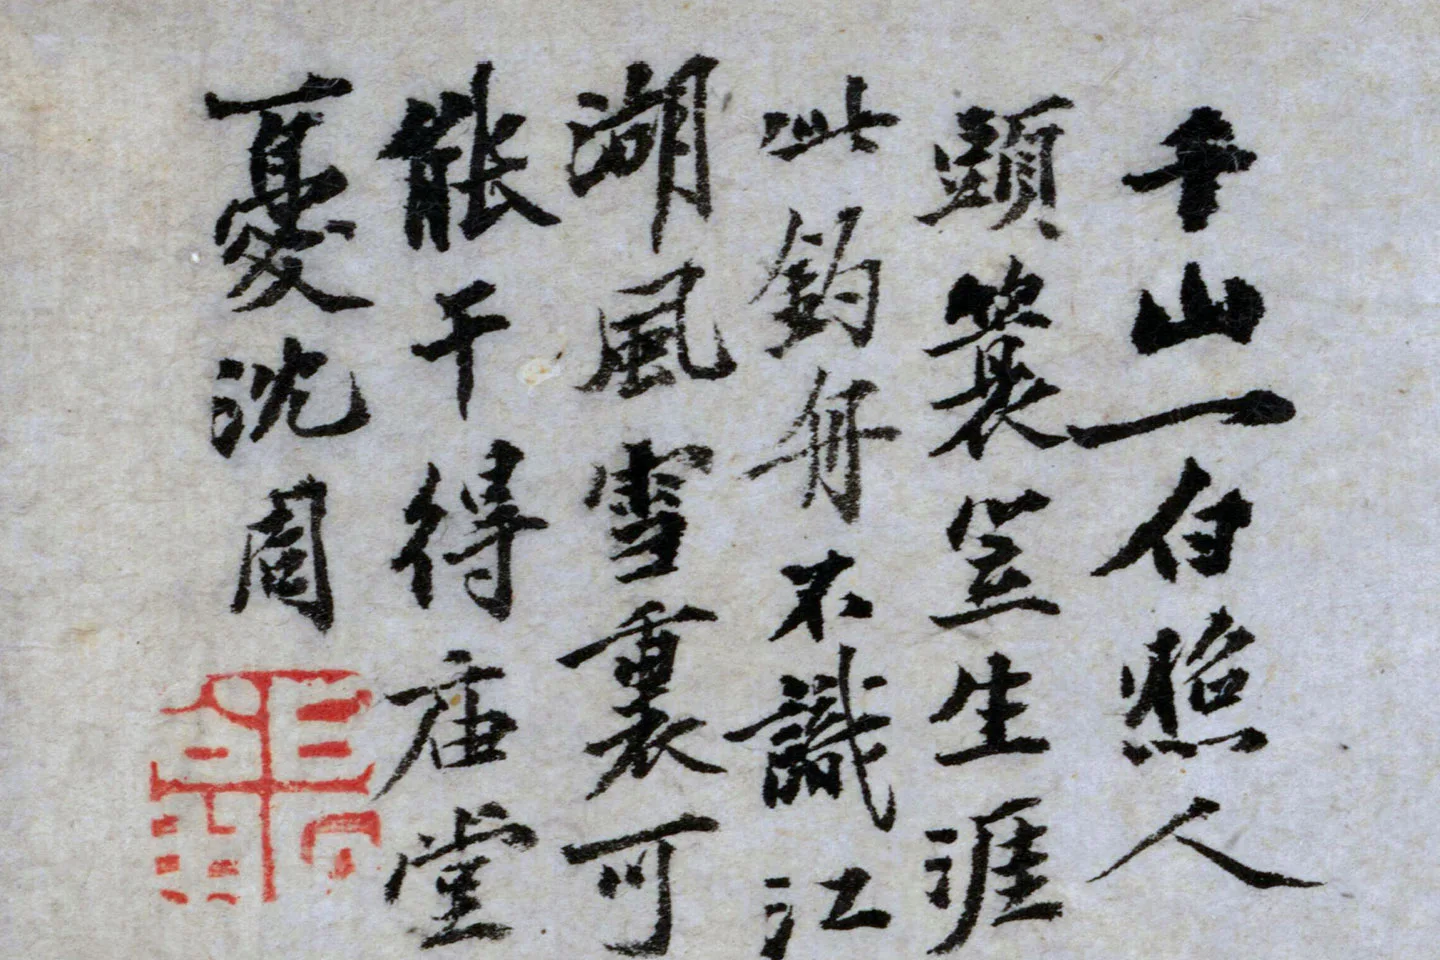 千山一白照人
頭簑笠生涯
此釣舟不識江
湖風雪裏可
能干得庙堂
憂沈周